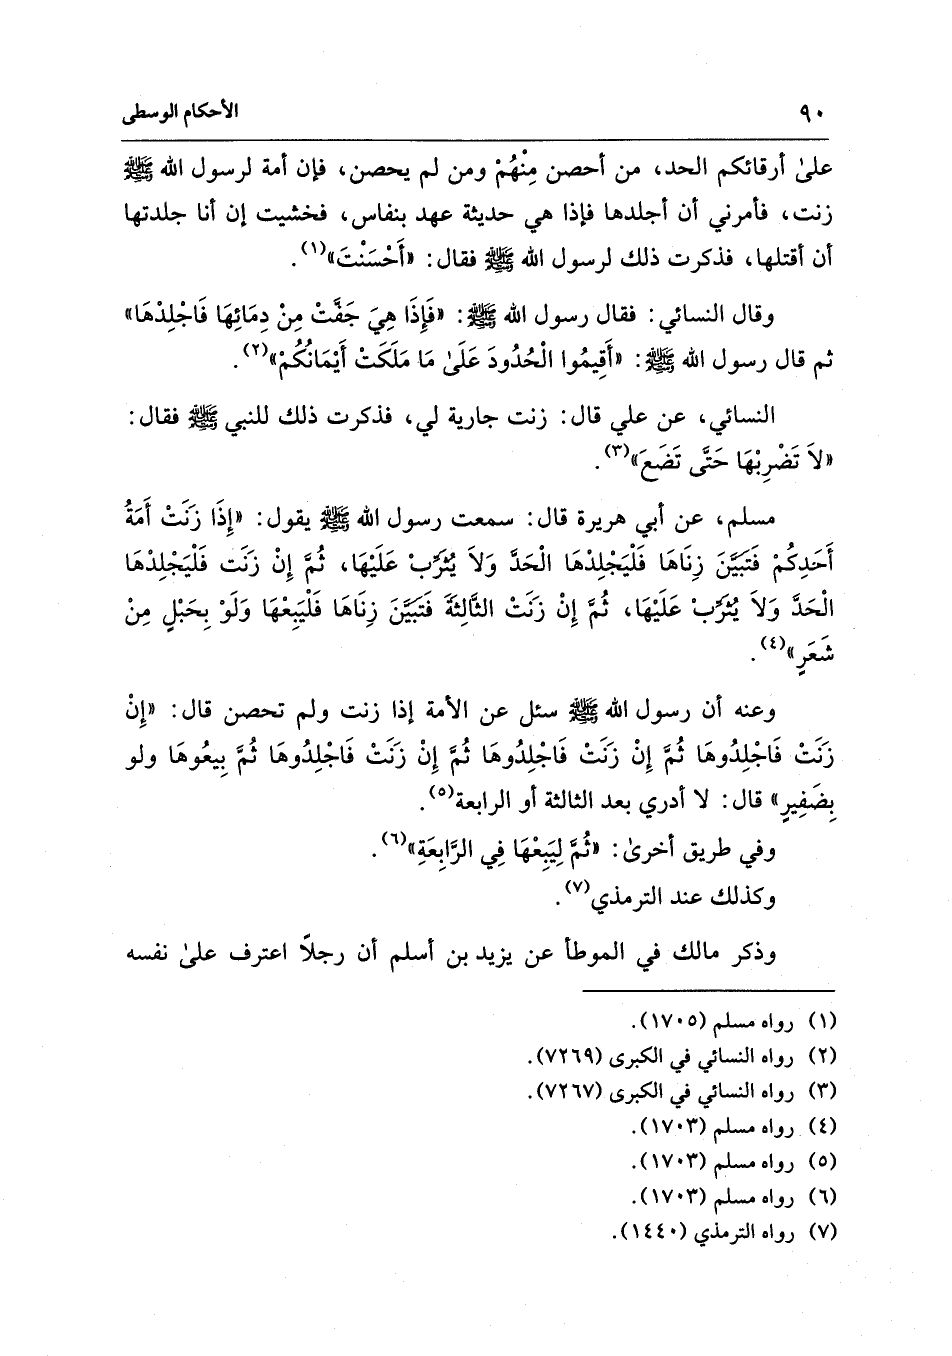 ٩٠ الأحكام الوسطى
علىٰ أرقائكم الحد، من أحصن مِنْهُمْ ومن لم يحصن، فإن أمة لرسول الله ﷺ
زنت، فأمرني أن أجلدها فإذا هي حديثة عهد بنفاس، فخشيت إن أنا جلدتها
أن أقتلها، فذكرت ذلك لرسول الله ﷺ فقال: «أَحْسَنْتَ»(١).
وقال النسائي: فقال رسول الله ﷺ: «فَإِذَا هِيَ جَفَّتْ مِنْ دِمَائِهَا فَاجْلِدْهَا»
ثم قال رسول الله ﷺ: «أَقِيمُوا الْحُدُودَ عَلَىٰ مَا مَلَكَتْ أَيْمَانُكُمْ»(٢).
النسائي، عن علي قال: زنت جارية لي، فذكرت ذلك للنبي ﷺ فقال:
«لاَ تَضْرِبْهَا حَتَّى تَضَعَ»(٣).
مسلم، عن أبي هريرة قال: سمعت رسول الله ﷺ يقول: «إِذَا زَنَتْ أَمَةُ
أَحَدِكُمْ فَتَبَيَّنَ زِنَاهَا فَلْيَجْلِدْهَا الْحَدَّ وَلاَ يُثَرِّبْ عَلَيْهَا، ثُمَّ إِنْ زَنَت فَلْيَجْلِدْهَا
الْحَدَّ وَلاَ يُثَرِّبْ عَلَيْهَا، ثُمَّ إِنْ زَنَتْ الثَّالِثَةَ فَتَبَيَّنَ زِنَاهَا فَلْيَبِعْهَا وَلَوْ بِحَبْلٍ مِنْ
شَعَرٍ»(٤).
وعنه أن رسول الله ﷺ سئل عن الأمة إذا زنت ولم تحصن قال: «إِنْ
زَنَتْ فَاجْلِدُوهَا ثُمَّ إِنْ زَنَتْ فَاجْلِدُوهَا ثُمَّ إِنْ زَنَتْ فَاجْلِدُوهَا ثُمَّ بِيعُوهَا ولو
بِضَفِيرٍ» قال: لا أدري بعد الثالثة أو الرابعة(٥).
وفي طريق أخرىٰ: «ثُمَّ لِيَبِعْهَا فِي الرَّابِعَةِ»(٦).
وكذلك عند الترمذي(٧).
وذكر مالك في الموطأ عن يزيد بن أسلم أن رجلاً اعترف علىٰ نفسه
(١) رواه مسلم (١٧٠٥).
(٢) رواه النسائي في الكبرى (٧٢٦٩).
(٣) رواه النسائي في الكبرى (٧٢٦٧).
(٤) رواه مسلم (١٧٠٣).
(٥) رواه مسلم (١٧٠٣).
(٦) رواه مسلم (١٧٠٣).
(٧) رواه الترمذي (١٤٤٠).